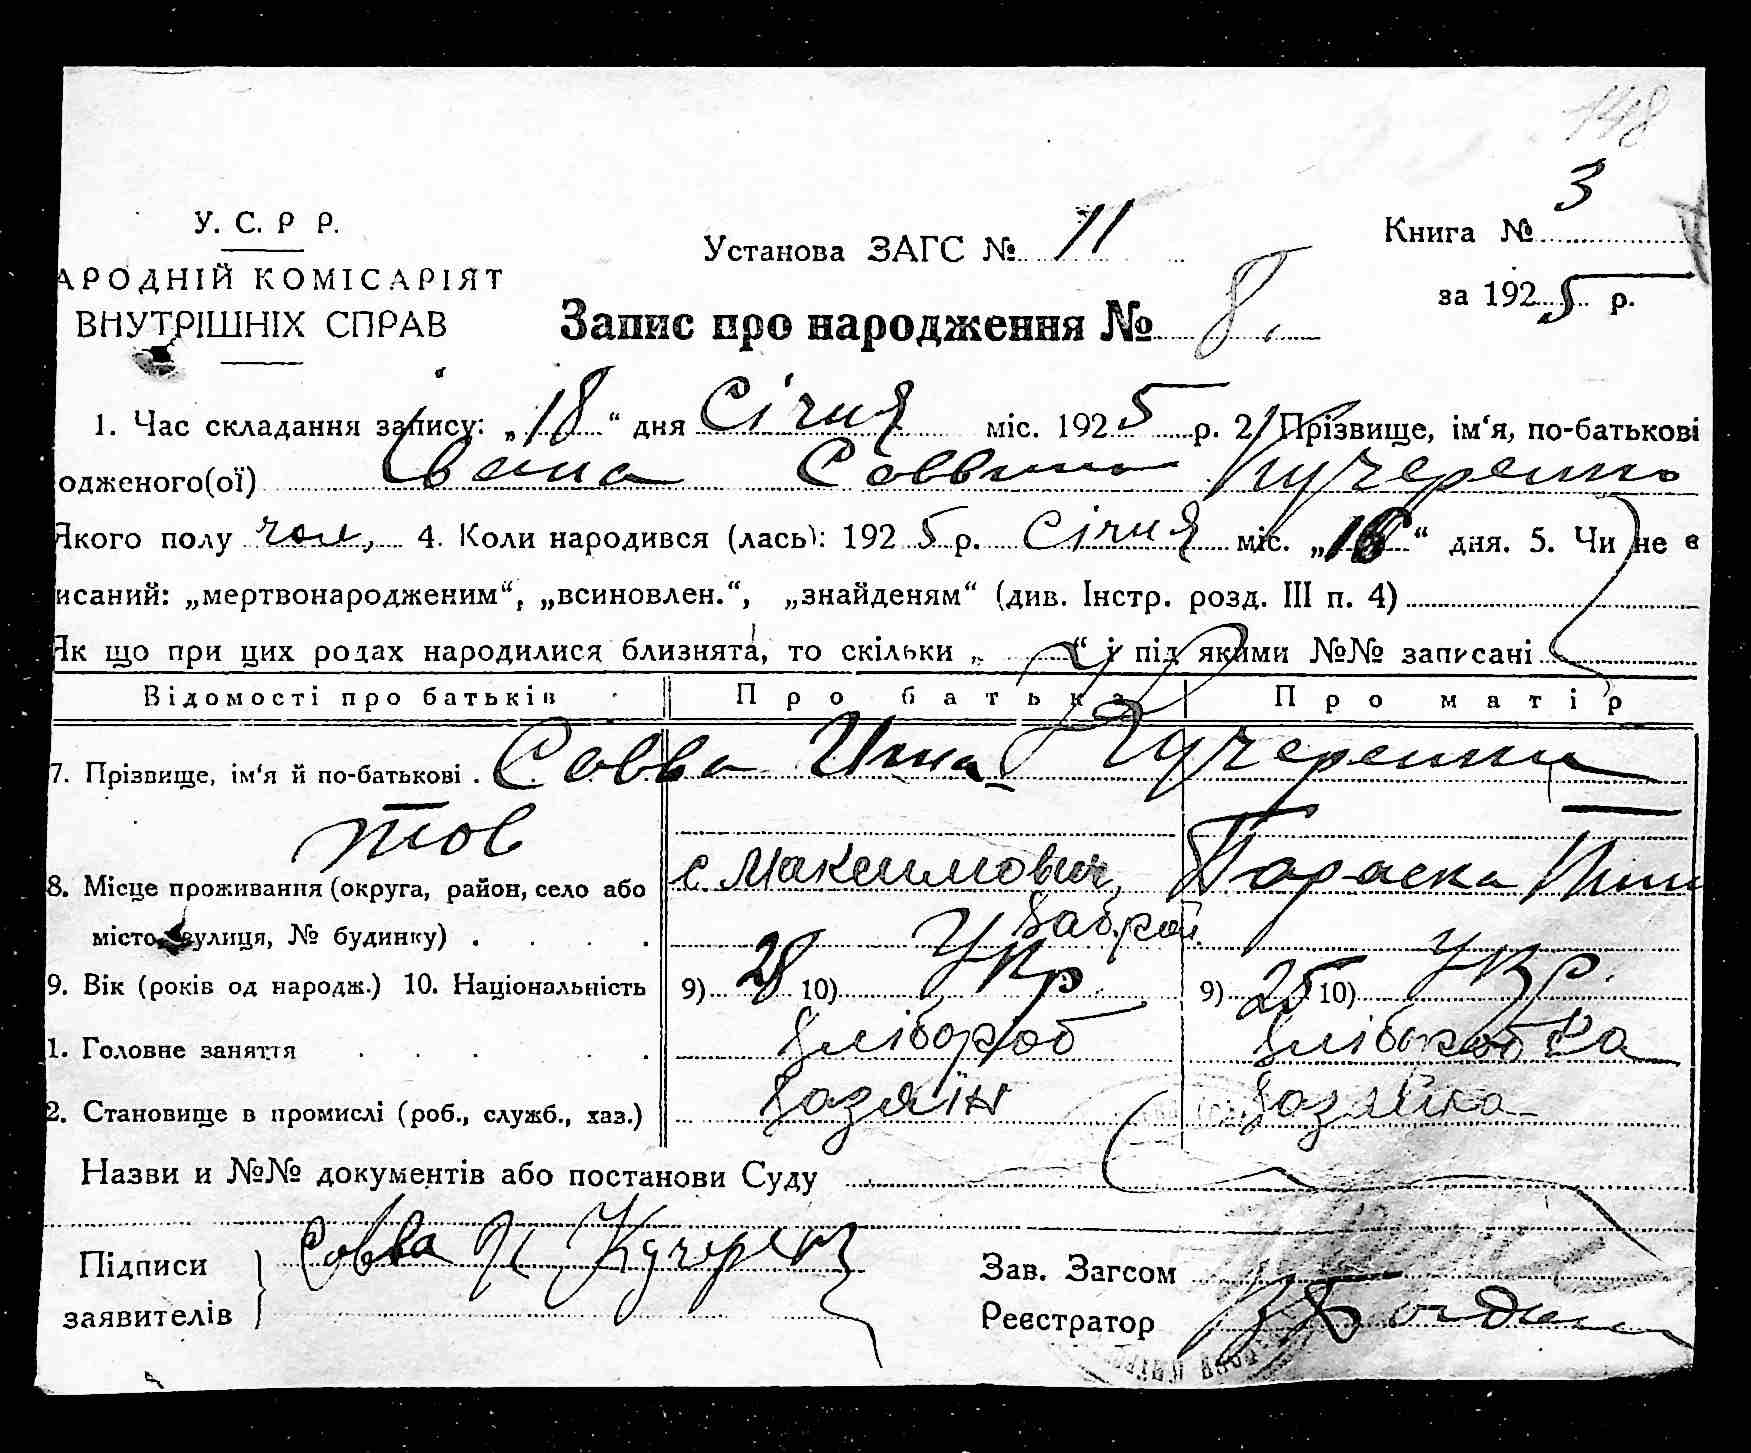 148
У. С. Р Р.
АРОДНІЙ КОМІСАРІЯТ
ВНУТРІШНІХ СПРАВ
Установа ЗАГС № 11
Книга № 3
за 1925 р.
Запис про народження № 8.
1. Час складання запису: „18“ дня Січня міс. 1925 р. 2. Прізвище, ім‘я, по-батькові
одженого(ої) Івана Кучеренко
Якого полу чол, 4. Коли народився (лась): 1925 р. Січня міс. „16“ дня. 5. Чи не в
исаний: „мертвонародженим“, „всиновлен.“, „знайденям“ (див. Інстр. розд. III п. 4)
Як що при цих родах народилися близнята, то скільки „ “ і під якими №№ записані
Відомості про батьків Про батька Про матір
7. Прізвище, ім‘я й по-батькові . Савва Кучеренки
8. Місце проживання (округа, район, село або с. Максимович, Параска
місто вулиця, № будинку) . . . .
9. Вік (років од народж.) 10. Національність 9) 28 10) Укр. 9) 25 10) Укр.
1. Головне заняття . . . . . Хлібороб Хліборобка
2. Становище в промислі (роб., служб., хаз.) Хазяїн Хазяйка
Назви и №№ документів або постанови Суду
Підписи Савва И Кучерен
заявителів
Зав. Загсом
Реєстратор